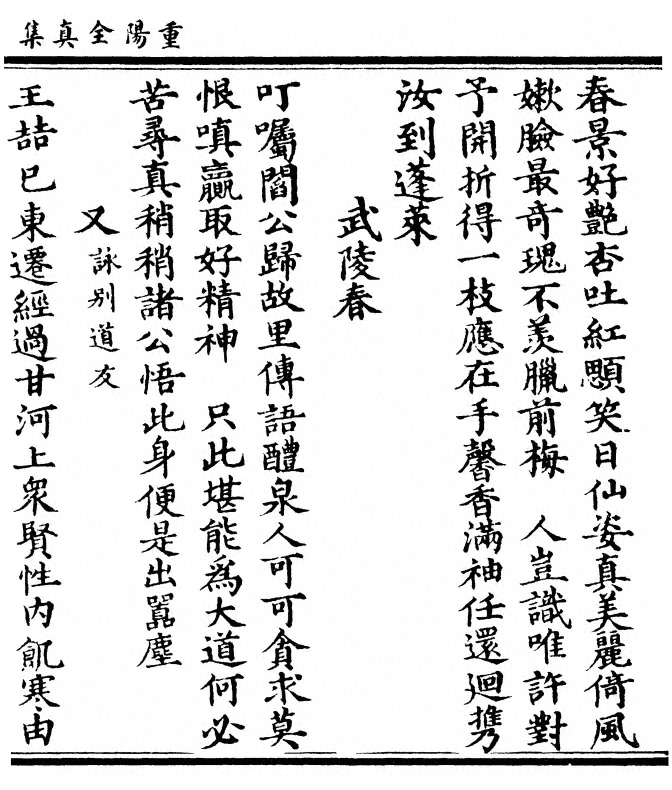 重陽全真集
春景好艷杏吐紅顋笑日仙姿真美麗倚風
嫰臉最竒瑰不羡臘前梅　人豈識唯許對
予開折得一枝應在手馨香滿袖任還迴携
汝到蓬萊
武陵春
叮囑閻公歸故里傳語醴泉人可可貪求莫
恨嗔贏取好精神　只此堪能爲大道何必
苦尋真稍稍諸公悟此身便是出嚣塵
又　詠別道友
王喆巳東遷經過甘河上衆賢性内飢寒由